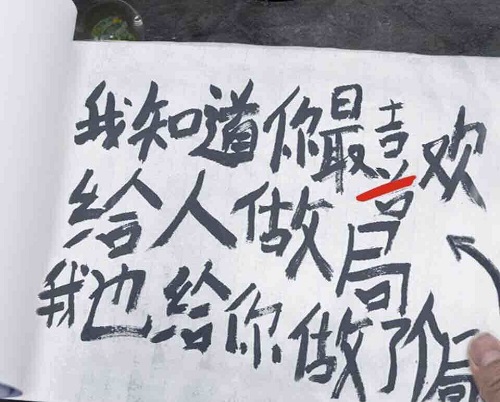 我知道你最喜欢
给人做局
我也给你做个局